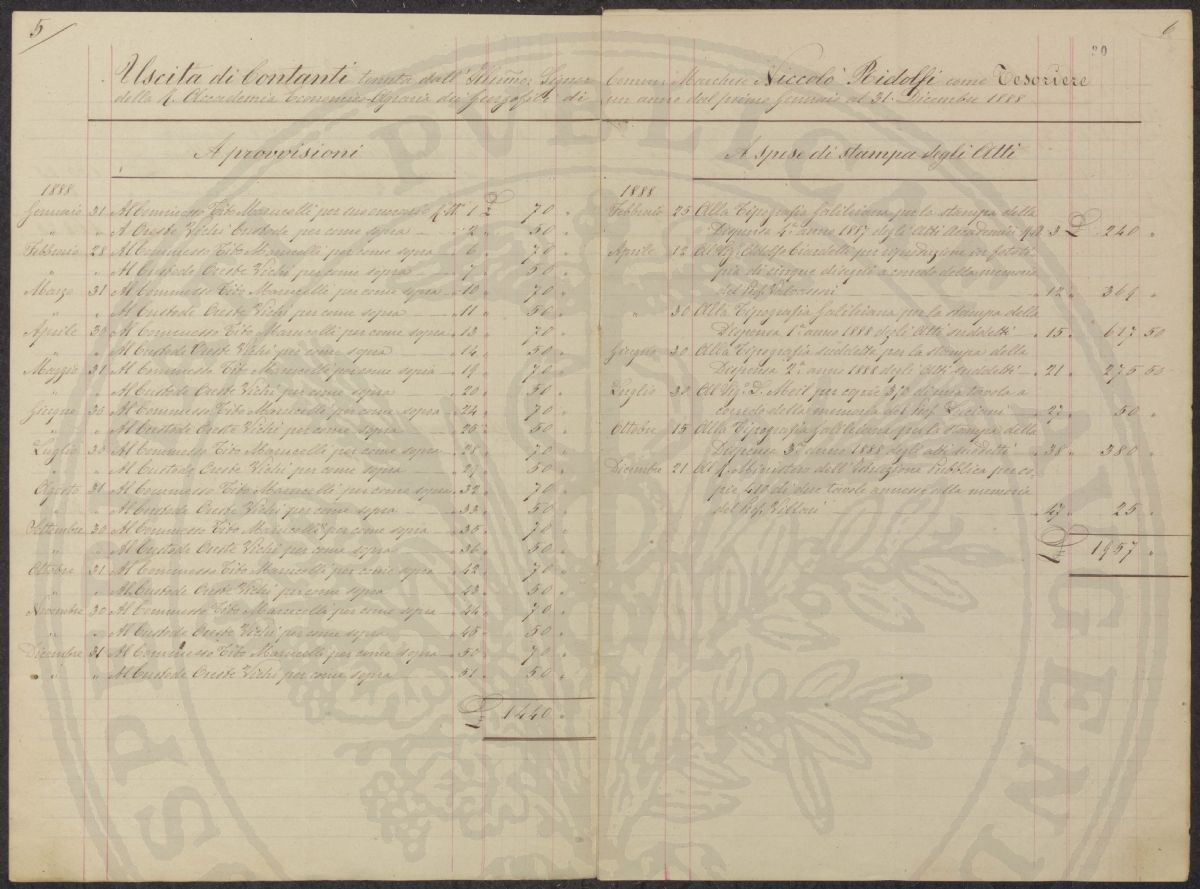 5
Uscita di Contanti tenuta dall' Illmo. Signor
della R. Accademia Economico-Agraria dei Georgofili di
A provvisioni
1888
Gennaio 31 Al Commesso Tito Marucelli per suo onorario No. 1 £ 70 "
" " A Oreste Vichi Custode per come sopra " 2 " 50 "
Febbraio 28 Al Commesso Tito Marucelli per come sopra " 6 " 70 "
" " Al Custode Oreste Vichi per come sopra " 7 " 50 "
Marzo 31 Al Commesso Tito Marucelli per come sopra " 10 " 70 "
" " Al Custode Oreste Vichi per come sopra " 11 " 50 "
Aprile 30 Al Commesso Tito Marucelli per come sopra " 13 " 70 "
" " Al Custode Oreste Vichi per come sopra " 14 " 50 "
Maggio 31 Al Commesso Tito Marucelli per come sopra " 19 " 70 "
" " Al Custode Oreste Vichi per come sopra " 20 " 50 "
Giugno 30 Al Commesso Tito Marucelli per come sopra " 24 " 70 "
" " Al Custode Oreste Vichi per come sopra " 25 " 50 "
Luglio 30 Al Commesso Tito Marucelli per come sopra " 28 " 70 "
" " Al Custode Oreste Vichi per come sopra " 29 " 50 "
Agosto 31 Al Commesso Tito Marucelli per come sopra " 32 " 70 "
" " Al Custode Oreste Vichi per come sopra " 33 " 50 "
Settembre 30 Al Commesso Tito Marucelli per come sopra " 35 " 70 "
" " Al Custode Oreste Vichi per come sopra " 36 " 50 "
Ottobre 31 Al Commesso Tito Marucelli per come sopra " 42 " 70 "
" " Al Custode Oreste Vichi per come sopra " 43 " 50 "
Novembre 30 Al Commesso Tito Marucelli per come sopra " 44 " 70 "
" " Al Custode Oreste Vichi per come sopra " 45 " 50 "
Dicembre 31 Al Commesso Tito Marucelli per come sopra " 50 " 70 "
" " Al Custode Oreste Vichi per come sopra " 51 " 50 "
£ 1440 "
6
20
Comm. Marchese Niccolò Ridolfi come Tesoriere
un anno dal primo Gennaio al 31 Dicembre 1888
A spese di stampa degli Atti
1888
Febbraio 25 Alla Tipografia Galileiana per la stampa della
Dispensa 4a. anno 1887 degli Atti Accademici 3 £ 240 "
Aprile 12 Al Sig. Adolfo Ciardelli per riproduzione in fototi-
pia di cinque disegni a corredo della memoria
del Prof. " 12 " 369 "
" 30 Alla Tipografia Galileiana per la stampa della
Dispensa 1a. anno 1888 degli Atti suddetti " 15 " 617 50
Giugno 30 Alla Tipografia suddetta per la stampa della
Dispensa 2a. anno 1888 degli Atti suddetti " 21 " 275 50
Luglio 30 Al Sig. D. per copie 370 di una tavola a
corredo della memoria del Prof. " 27 " 50 "
Ottobre 15 Alla Tipografia Galileiana per la stampa della
Dispensa 3a. anno 1888 degli atti suddetti " 38 " 380 "
Dicembre 21 Al R. Ministero dell' Istruzione Pubblica per co-
pie 410 di due tavole annesse alla memoria
del Prof. Villari " 47 " 25 "
£ 1957 "